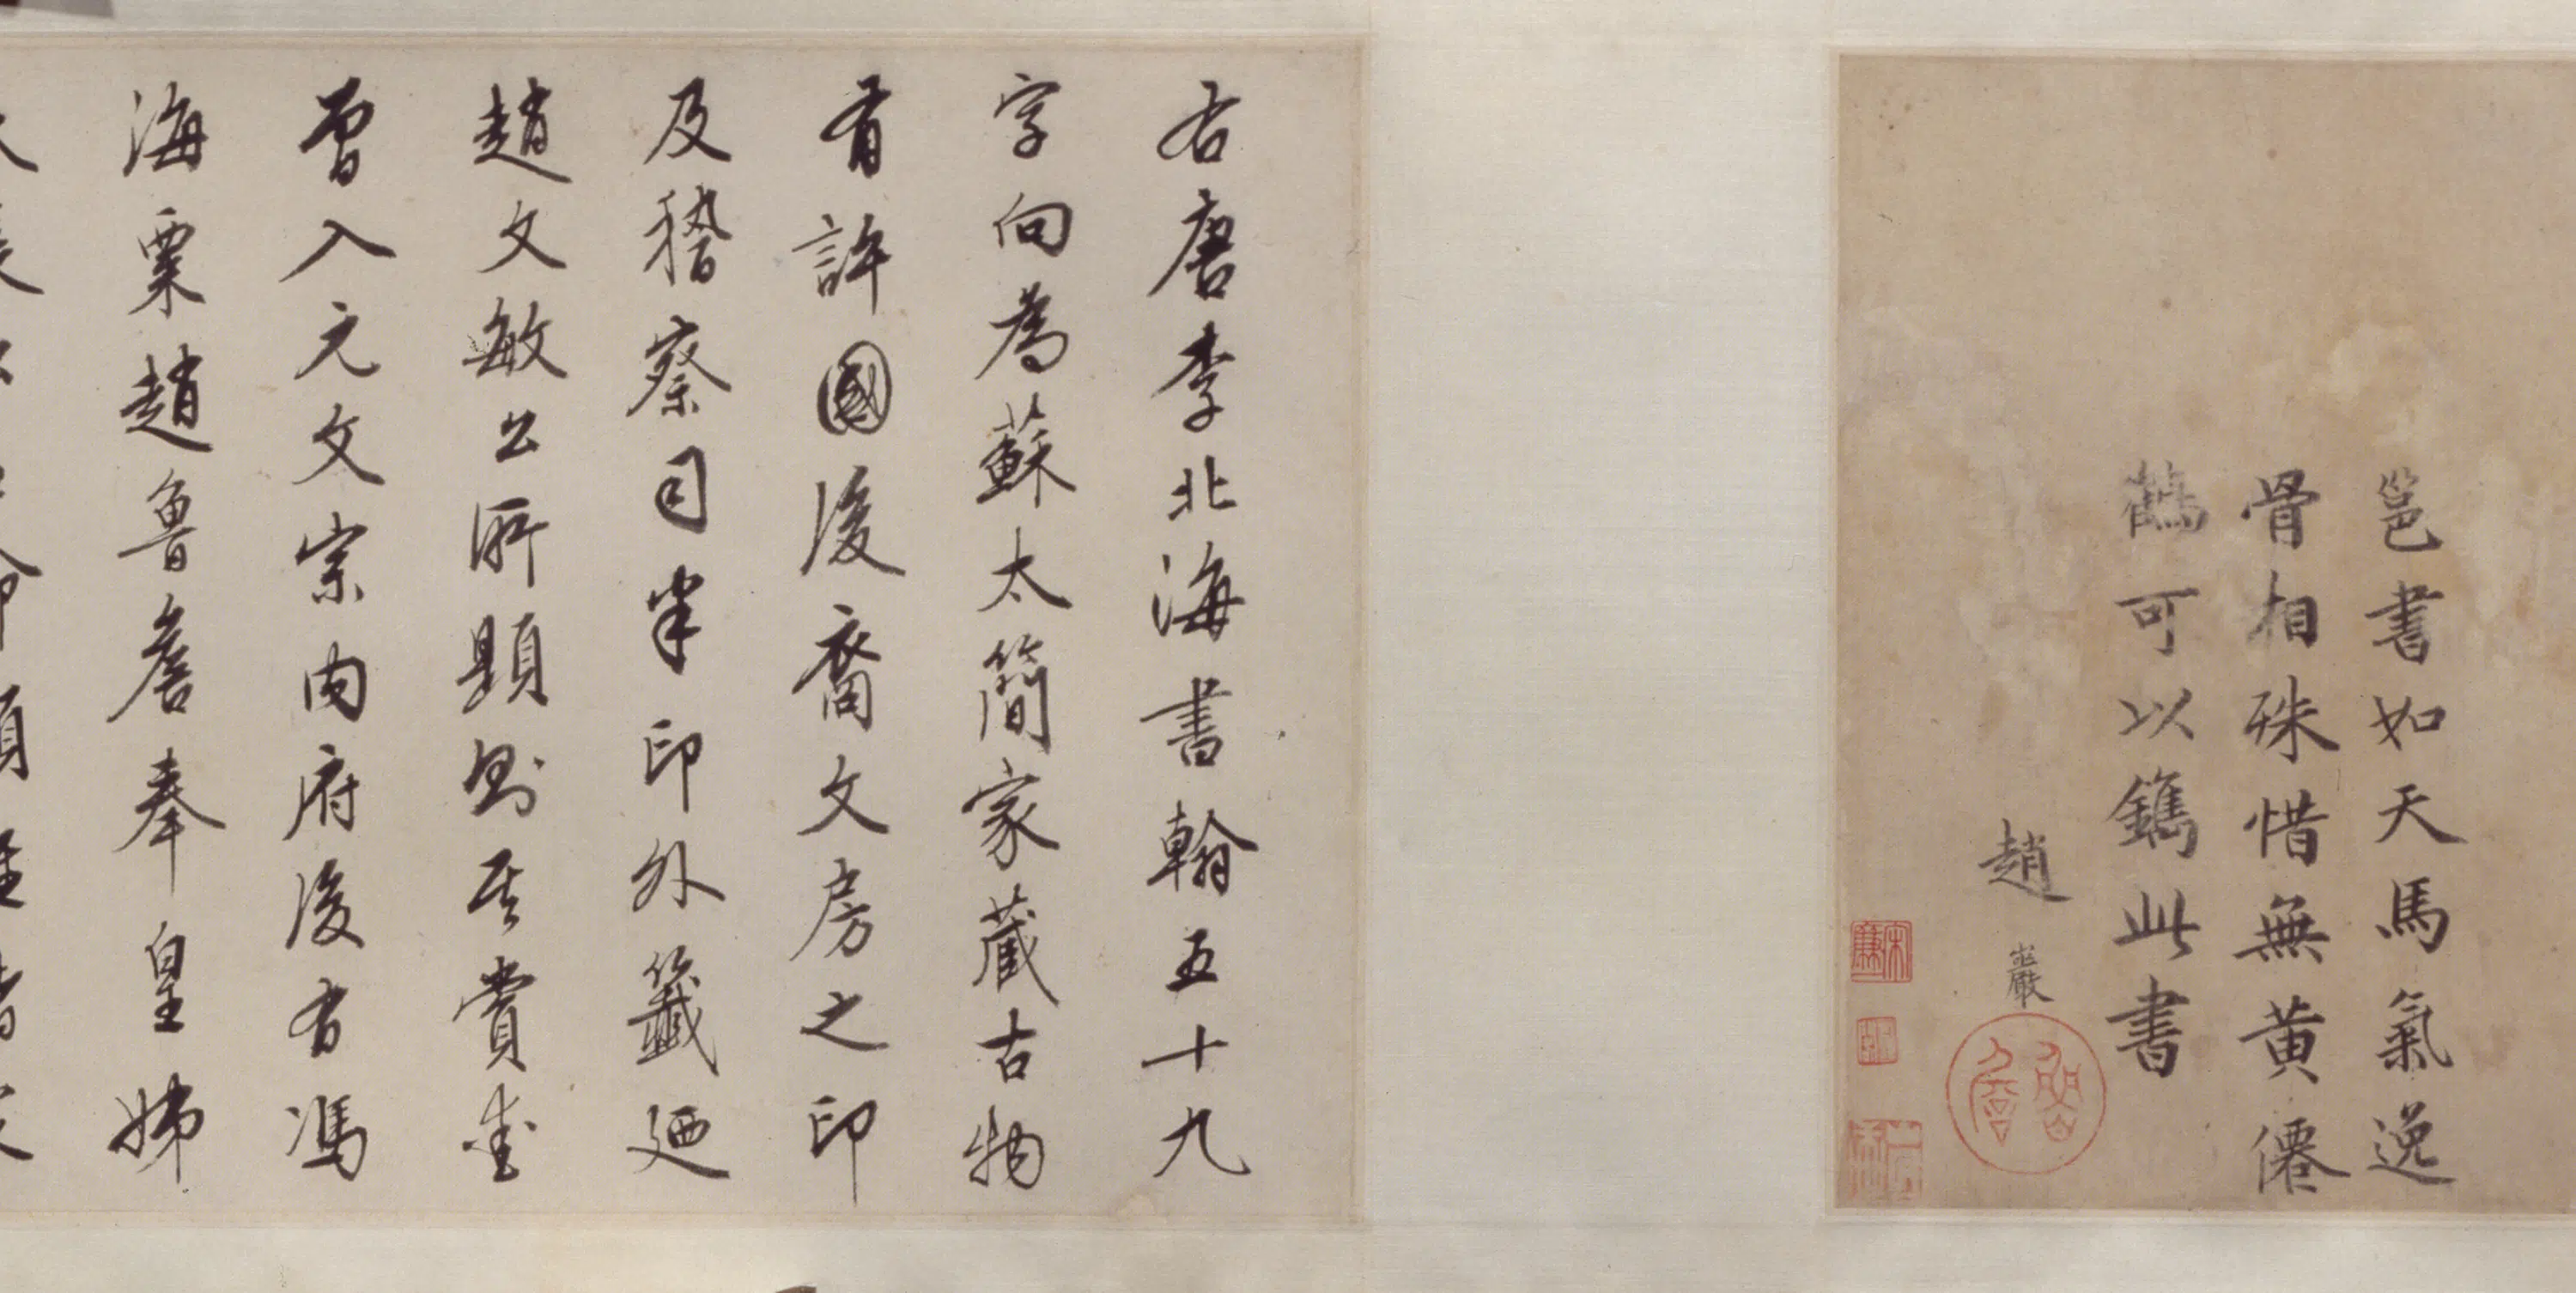 邕書如天馬氣逸
骨相殊惜無黄僊
鶴可以鐫此書
趙巖
右唐李北海書翰五十九
字向為蘇太簡家藏古物
有許國後裔文房之印
及稽察司半印外籤廼
趙文敏公所題則其賞鉴
曾入元文宗内府後有馮
海粟趙魯詹奉皇姊